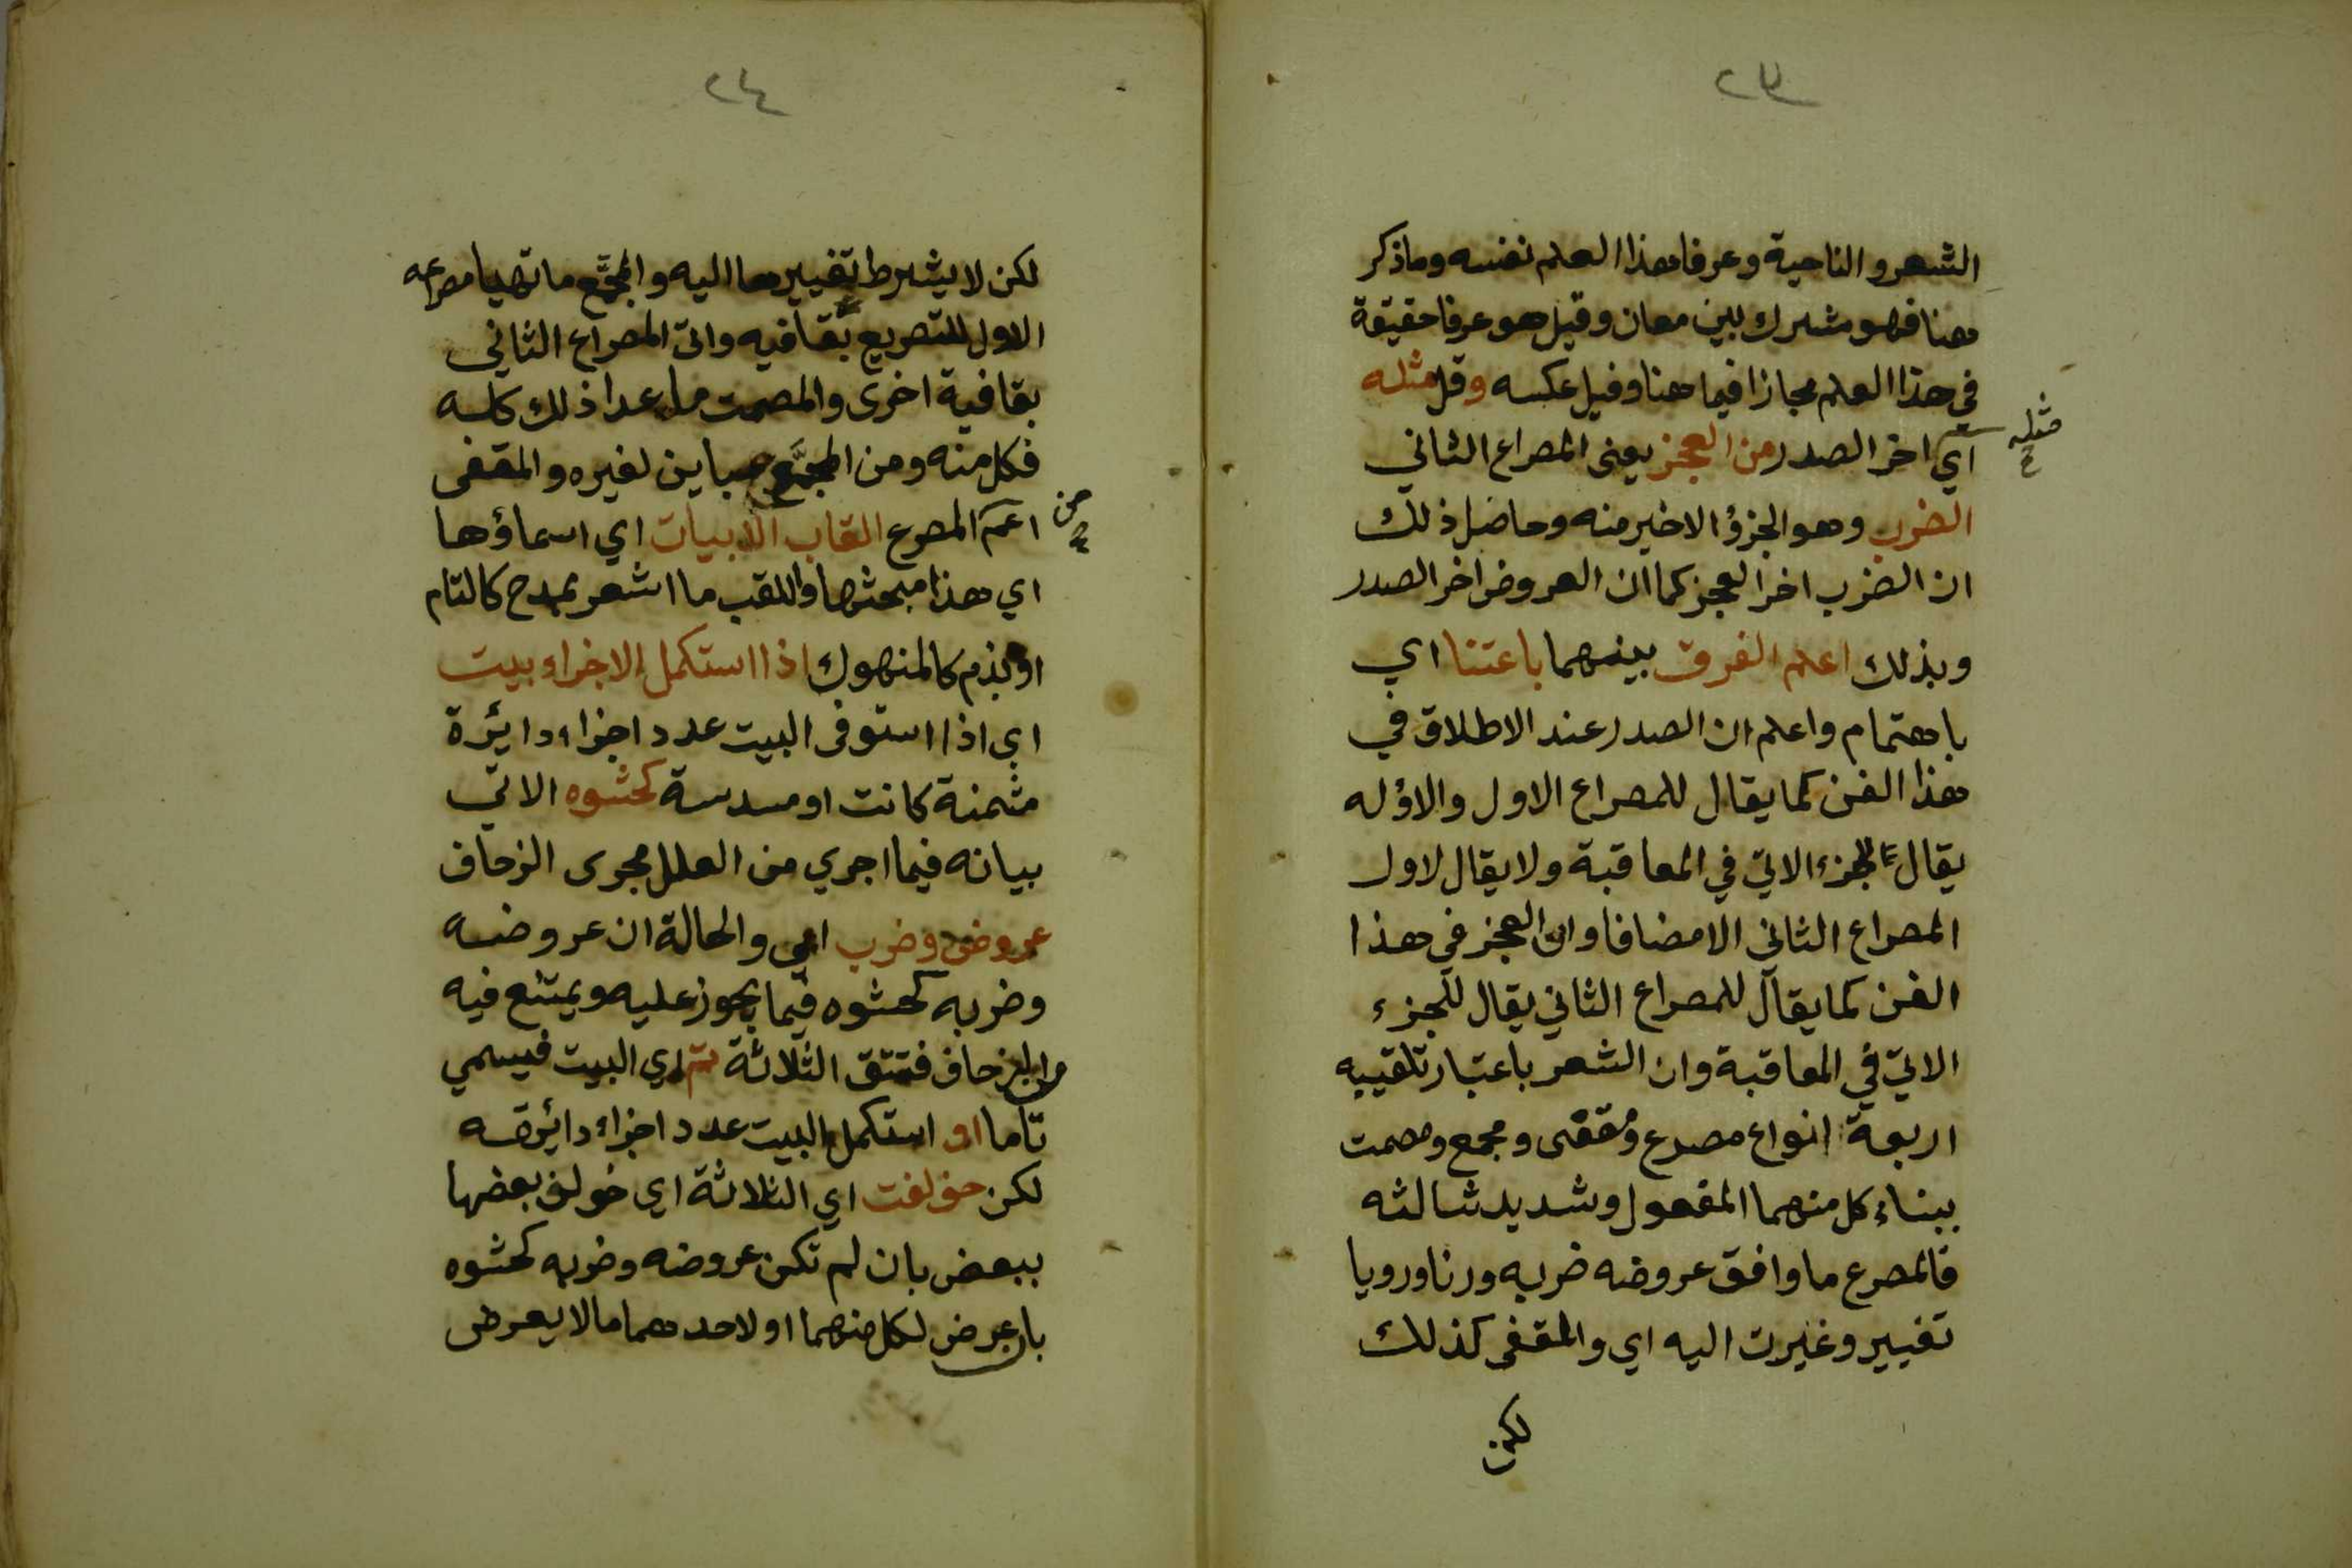 ٢٣
الشعر والناحية وعرفا هذا العلم نفسه وما ذكر
هنا فهو مشترك بين معان وقيل هو عرفا حقيقة
في هذا العلم مجازا فيما هنا وقيل عكسه وقل مثله
مثله
اي اخر الصدر من العجز يعني المصراع الثاني
الضرب وهو الجزؤ الاخير منه وحاصل ذلك
ان الضرب اخر العجز كما ان العروض اخر الصدر
وبذلك اعلم الفرق بينهما باعتنا اي
باهتمام واعلم ان الصدر عند الاطلاق في
هذا الفن كما يقال للمصراع الاول والاؤله
يقال للجزء الاتي في المعاقبة ولا يقال لاول
المصراع الثاني الا مضافا وان العجز في هذا
الفن كما يقال للمصراع الثاني يقال للجزء
الاتي في المعاقبة وان الشعر باعتبار تلقيبه
اربعة انواع مصرع ومقفى ومجمع ومصمت
ببناء كل منهما المفعول وشديد ثالثه
فالمصرع ما وافق عروضه ضربه ورنا ورويا
تغيير وغيرت اليه اي والمقفى كذلك
لكن
٢٤
لكن لا يشرط تغييرها اليه والمجمَّع ما تهيا مصرعه
الاول للتصريع بقافيه واتى المصراع الثاني
بقافية اخرى والمصمت ما عدا ذلك كله
فكل منه ومن المجمَّع مباين لغيره والمقفى
من
اعم المصرع القاب الابيات اي اسماؤها
اي هذا مبحثها واللقب ما اشعر بمدح كالتام
او بذم كالمنهوك اذا استكمل الاجزاء بيت
اي اذا استوفى البيت عدد اجزاء دايرة
مثمنة كانت او مسدسة كحشوه الاتي
بيانه فيما اجري من العلل مجرى الزحاف
عروض وضرب اي والحالة ان عروضه
وضربه كحشوه فيما يجوز عليه ويمتنع فيه
من الزحاف فتتق الثلاثة تم اي البيت فيسمي
تاما او استكمل البيت عدد اجزاء دائرته
لكن خولفت اي الثلاثة اي خولف بعضها
ببعض بان لم تكن عروضه وضربه كحشوه
بان عرض لكل منهما او لاحدهما ما لا يعرض